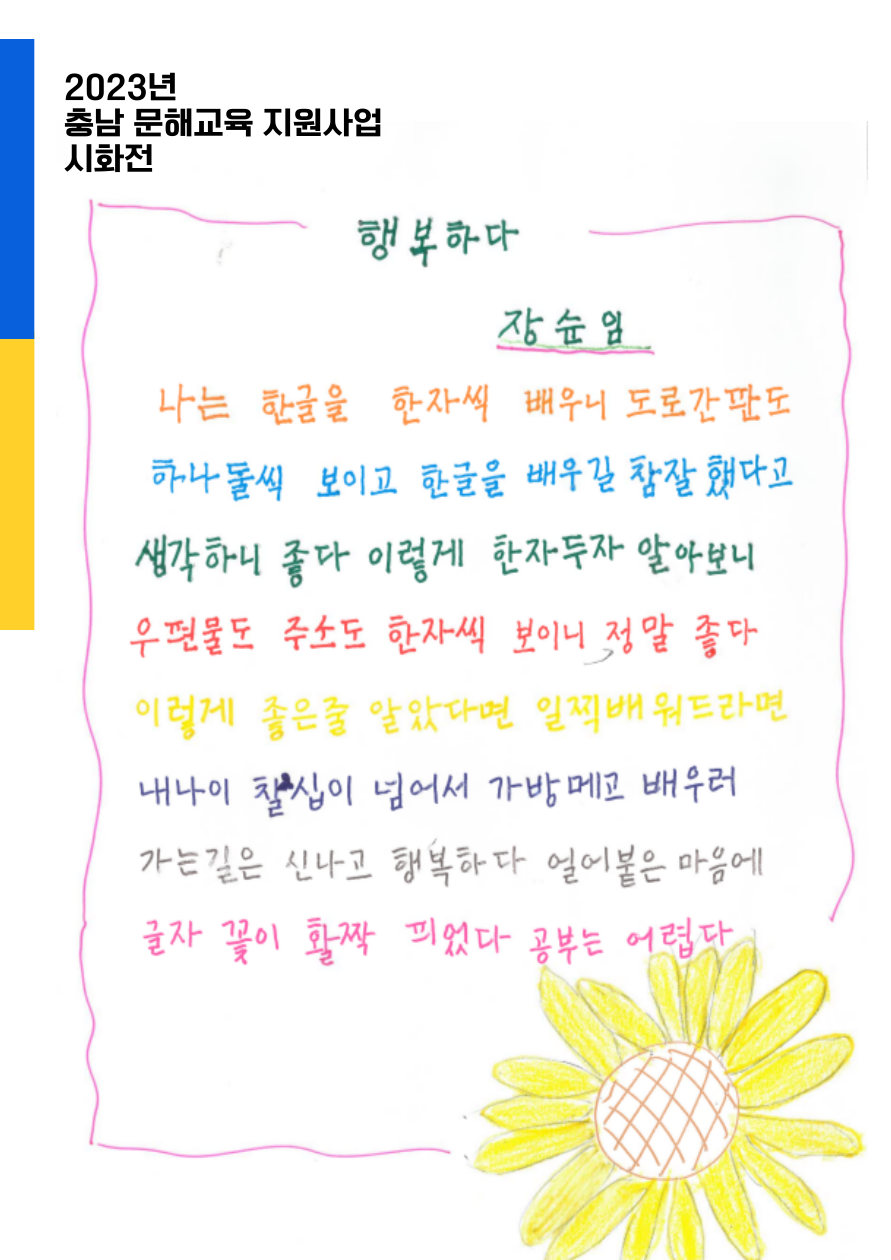 2023년
충남 문해교육 지원사업
시화전
행복하다
장순임
나는 한글을 한자씩 배우니 도로간판도
하나둘씩 보이고 한글을 배우길 참잘했다고
생각하니 좋다 이렇게 한자두자 알아보니
우편물도 주소도 한자씩 보이니 정말 좋다
이렇게 좋은줄 알았다면 일찍배워드라면
내나이 칠십이 넘어서 가방메고 배우러
가는길은 신나고 행복하다 얼어붙은 마음에
글자 꽃이 활짝 픠었다 공부는 어렵다